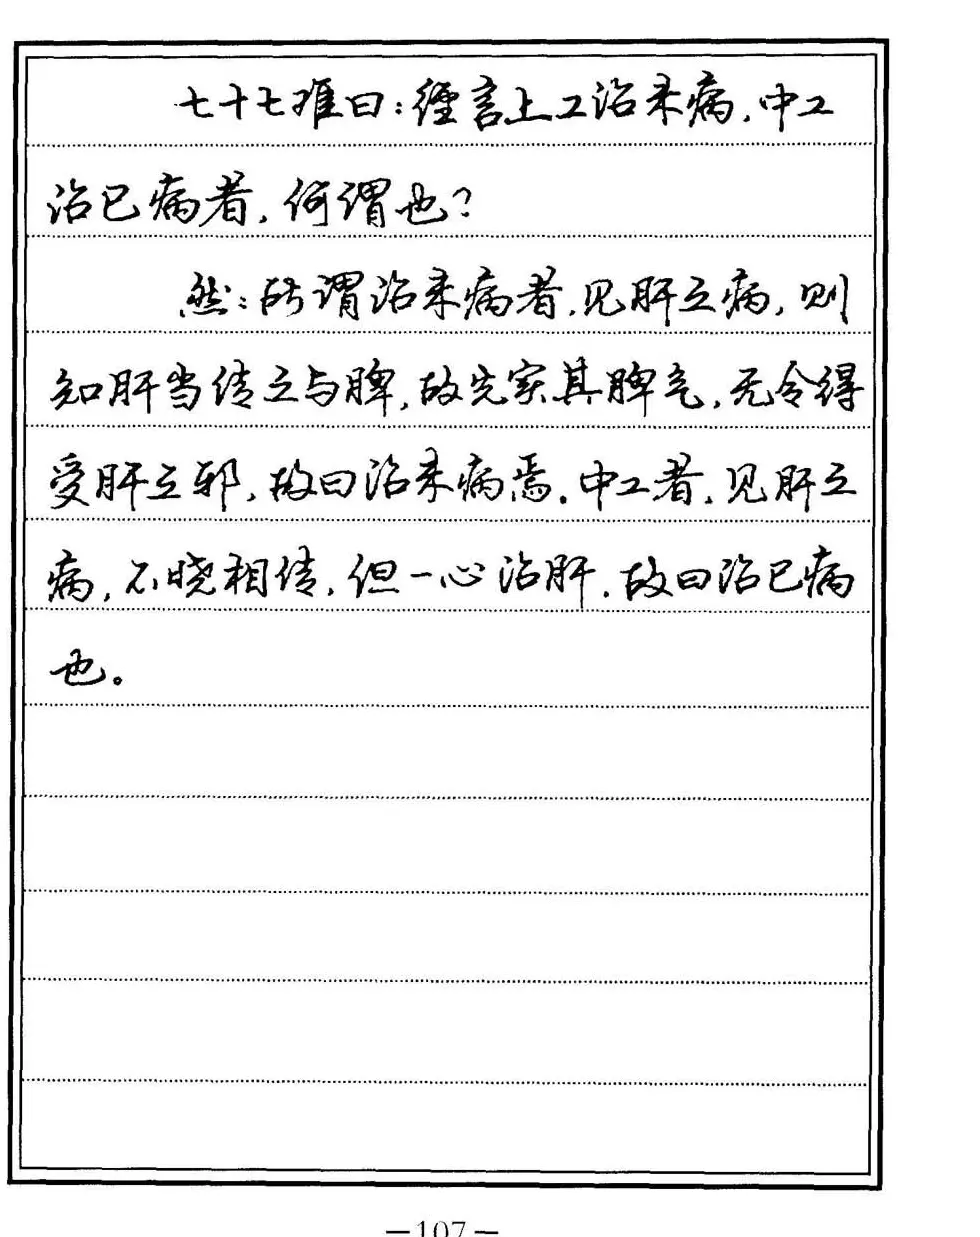 七十七难曰：经言上工治未病，中工
治已病者，何谓也？
然：所谓治未病者，见肝之病，则
知肝当传之与脾，故先实其脾气，无令得
受肝之邪，故曰治未病焉。中工者，见肝之
病，不晓相传，但一心治肝，故曰治已病
也。
—107—